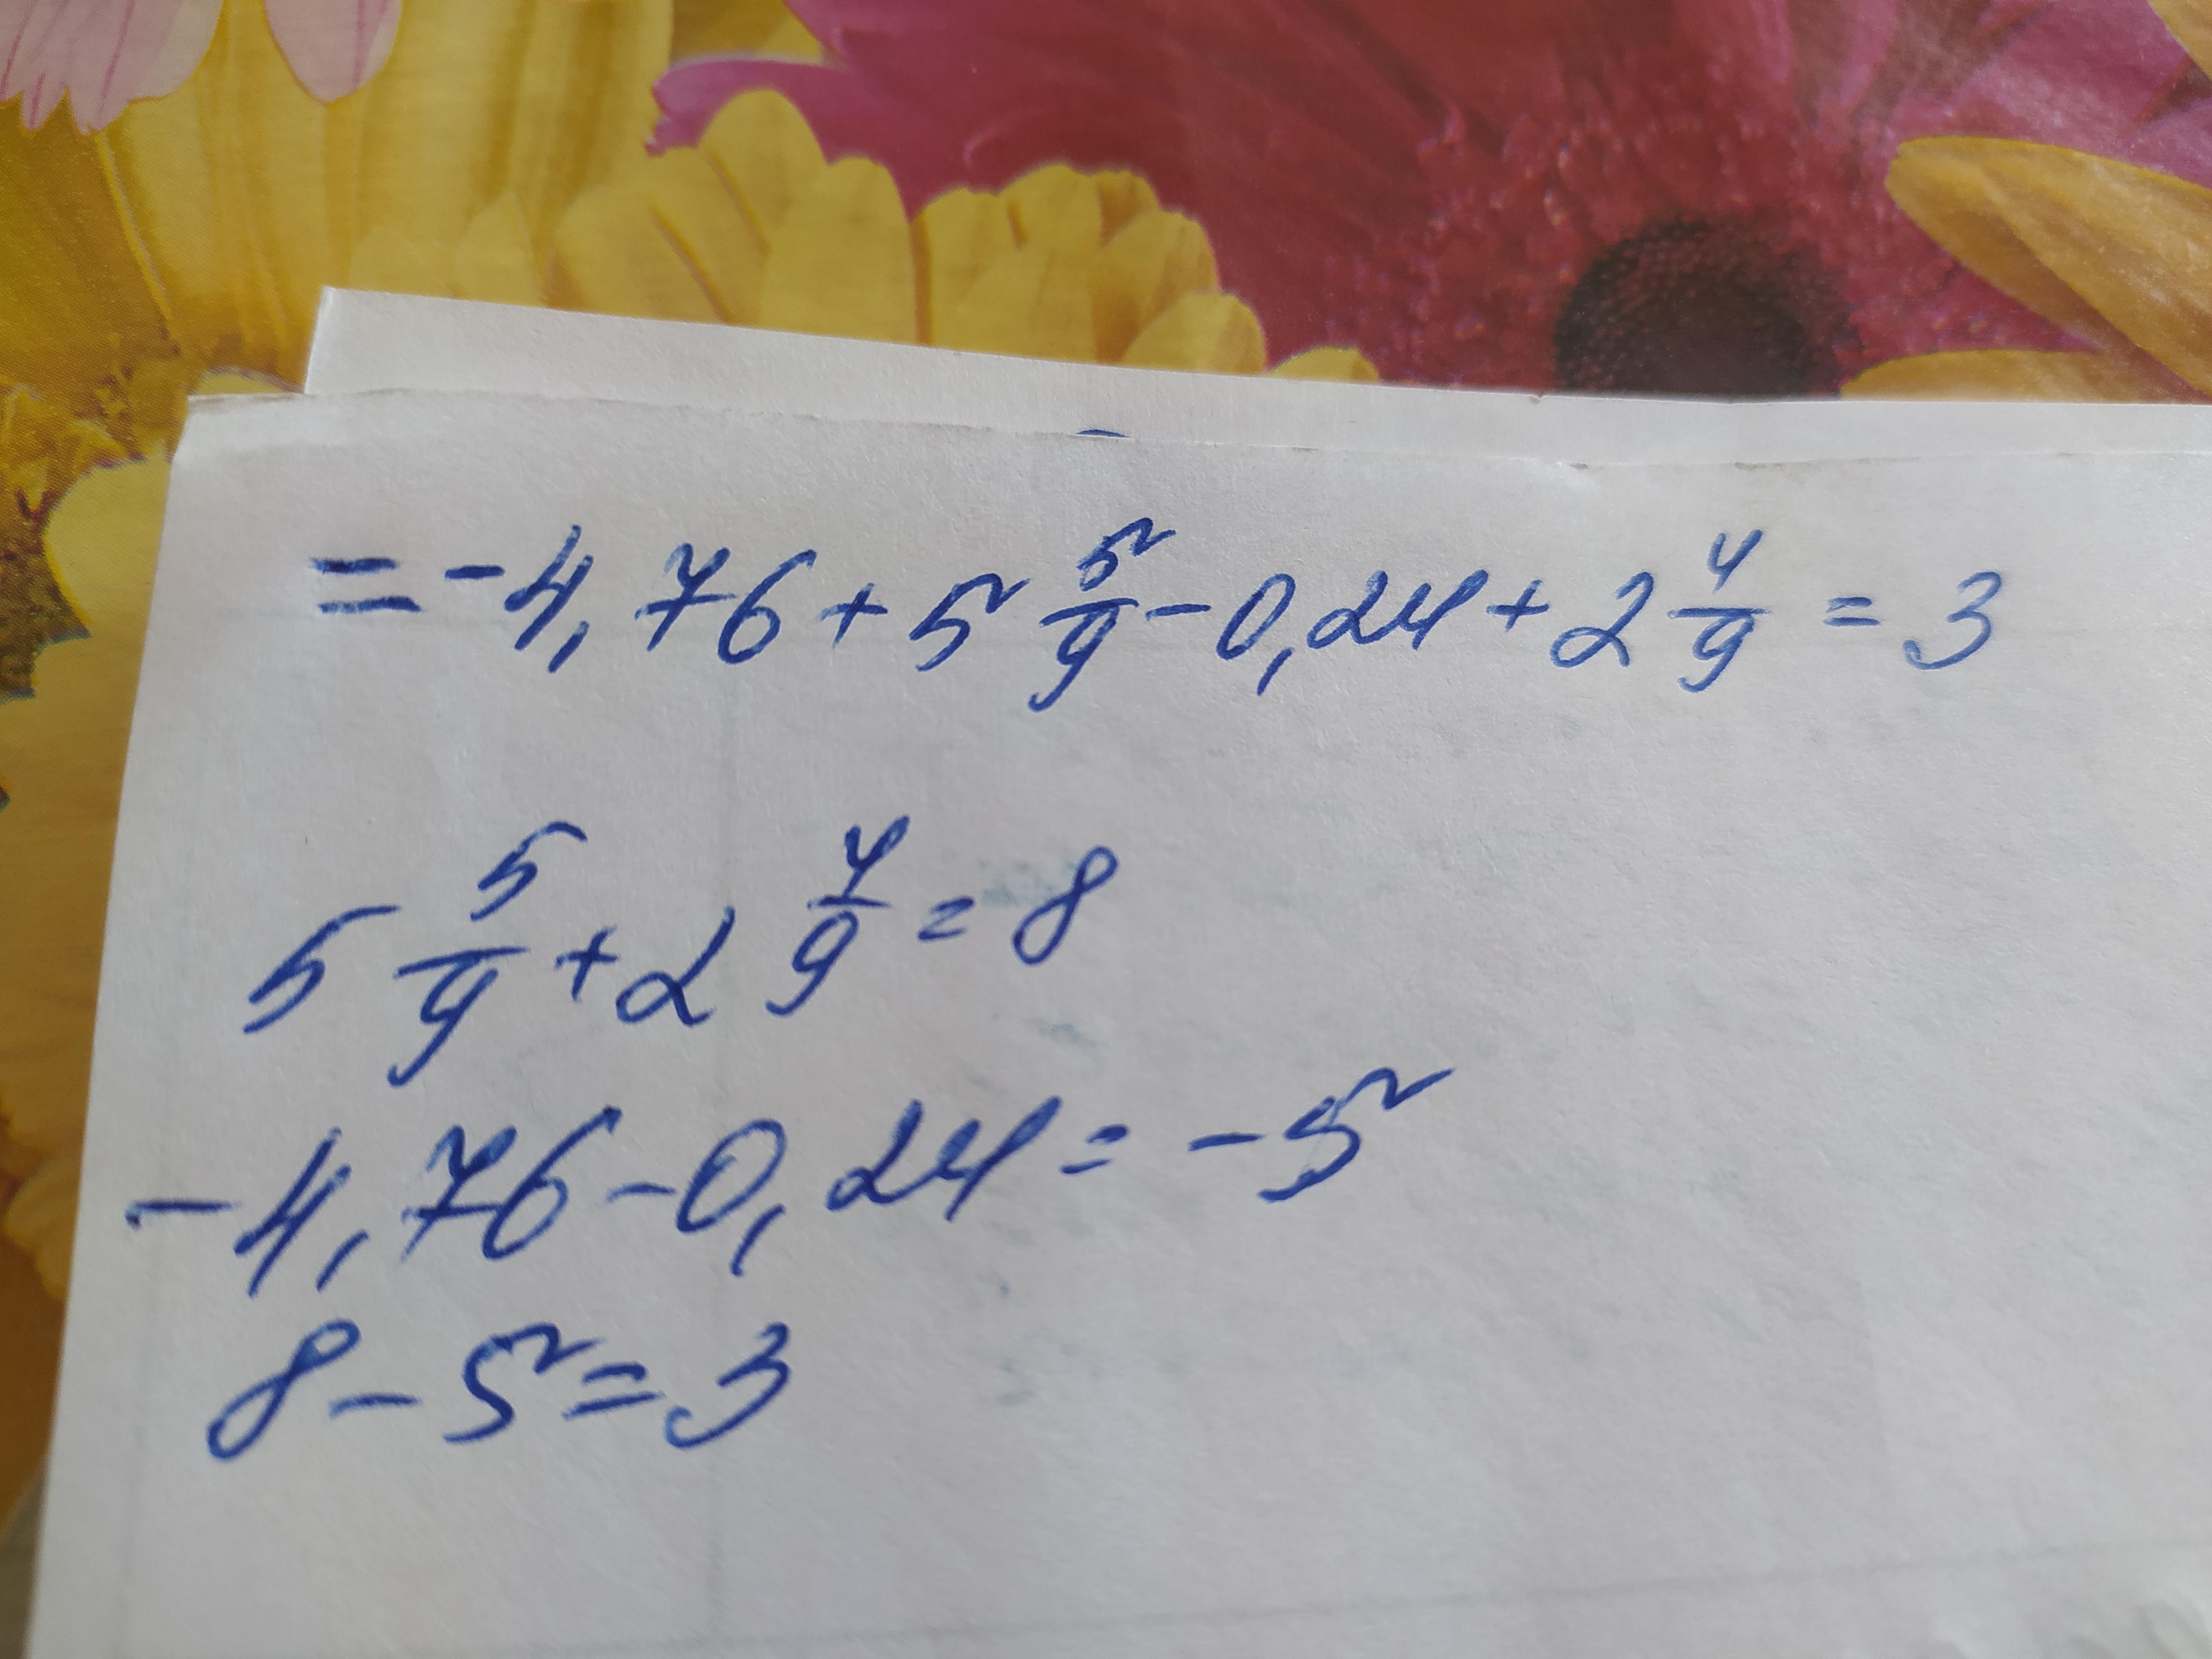 = -4,76 + 5 5/9 - 0,24 + 2 4/9 = 3
5 5/9 + 2 4/9 = 8
-4,76 - 0,24 = -5
8 - 5 = 3